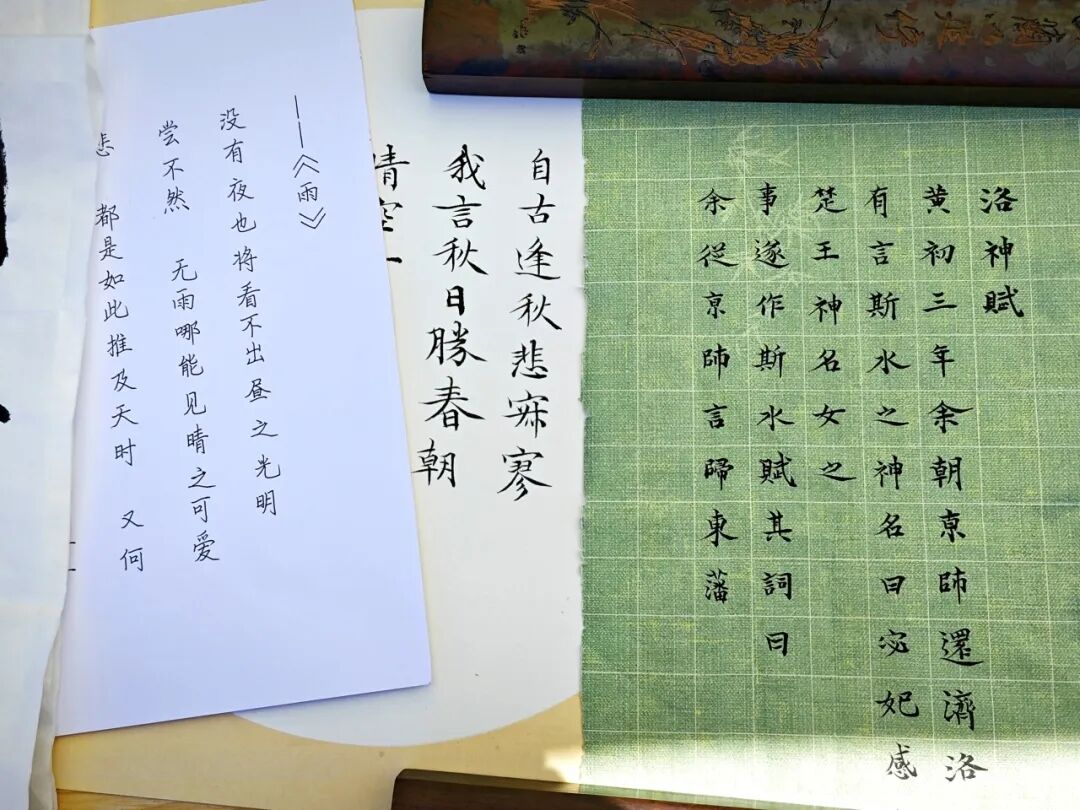 洛神賦
黄初三年余朝亰師還濟洛
有言斯水之神名曰宓妃感
楚王神名女之
事遂作斯水賦其詞曰
余從亰師言歸東藩
自古逢秋悲寂寥
我言秋日勝春朝
晴空一
——《雨》
没有夜也将看不出昼之光明
尝不然 无雨哪能见晴之可爱
都是如此推及天时 又何